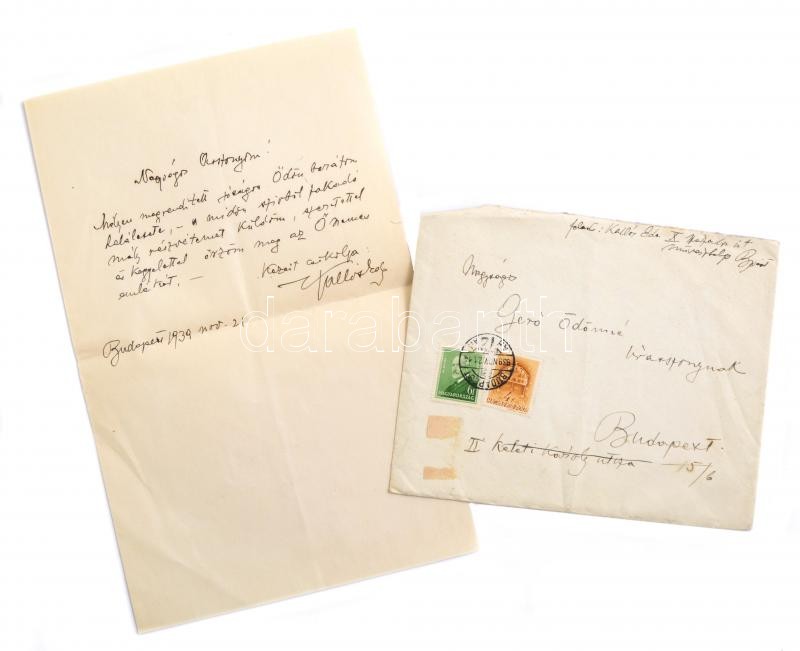 Nagyságos Asszonyom!
Mélyen megrendített jóságos Ödön barátom
halálesete, – s midőn szívből fakadó
mély részvétemet küldöm, szeretettel
és kegyelettel őrzöm meg az Ő nemes
emlékét. –
Kezeit csókolja:
Kallós Ede
Budapest 1939 nov. 21
feladó: Kallós Ede X
művésztelep Bpest
Nagyságos
Gerő Ödönné
úrasszonynak
Budapest.
II Keleti Károly utca 15/6
BUDAPEST
6f
MAGYARORSZÁG
4f
MAGYARORSZÁG
darabanth